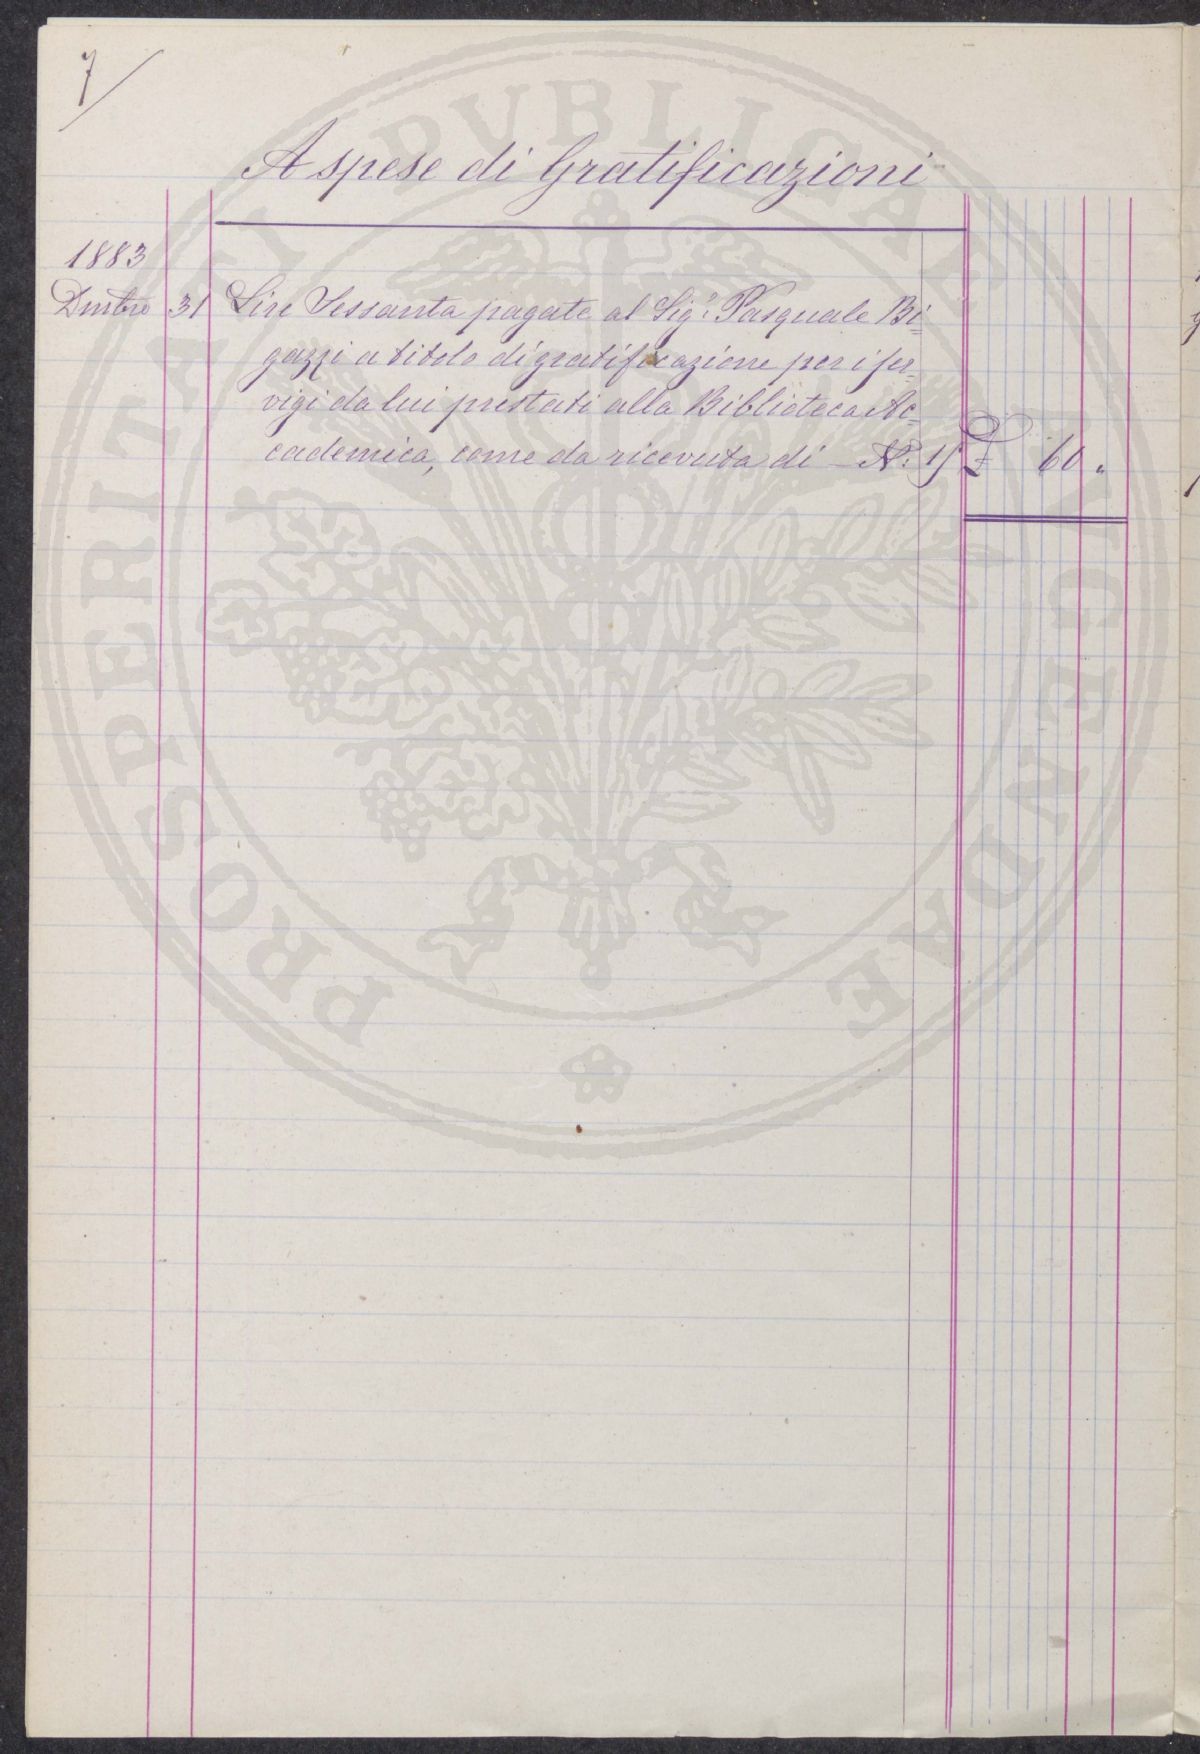 7
A spese di Gratificazioni
1883
Dmbre 31 Lire Sessanta pagate al Sigr. Pasquale Bi=
gazzi a titolo di gratificazione per i ser=
vigi da lui prestati alla Biblioteca Ac=
cademica, come da ricevuta di — N.
£ 60 "
PROSPERITATI PVBLICAE AVGENDAE